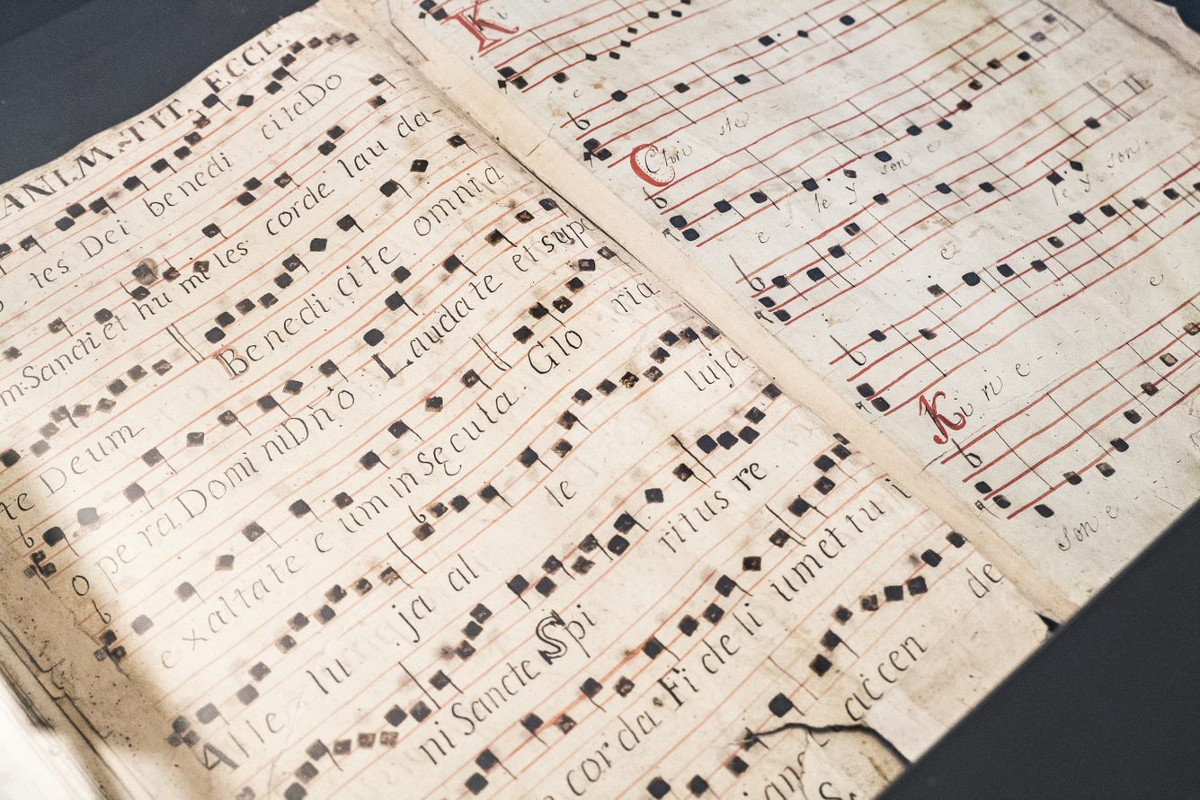 ANI.M. TIT. ECCL.
tes Dei benedi citeDo
m. Sancti et hu mi les corde lau da-
te Deum Benedi ci te omnia
o pe ra. Domi niDnō Laudate et sup
exaltate e um in secula. Glo ria
Alle lu ja al le luja
ni Sancte Spi ritus re
cor da. Fi de li umet tu i
accen de
Ki
Chri ste
e le y son e
e le y son.
Ki ri e -
e
son e